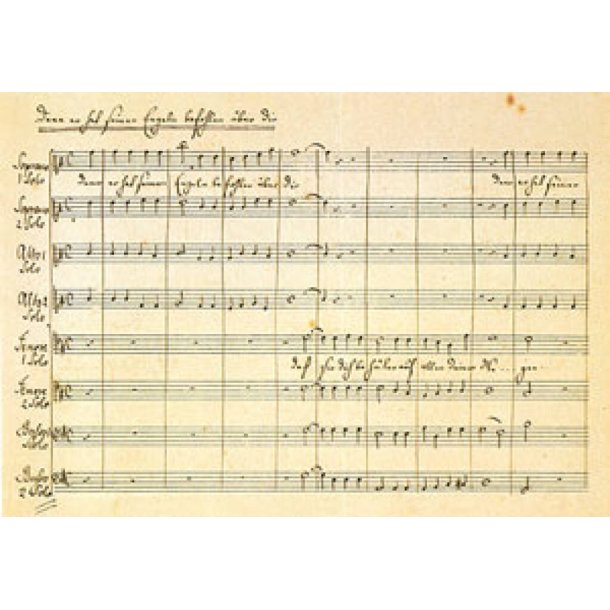 Denn er hat seinen Engeln befohlen über dir
Soprano
1 Solo
denn er hat seinen Engeln befohlen über dir denn er hat seinen
Soprano
2 Solo
Alto 1
Solo
Alto 2
Solo
Tenore
1 Solo
daß sie dich behüten auf allen deinen We - - - gen
Tenore
2 Solo
Basso 1
Solo
Basso
2 Solo